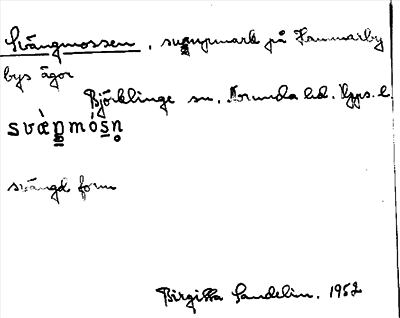 Svängmossen, sumpmark på Hammarby
bys ägor
Björklinge sn. Norunda hd. Upps. l.
svæ̀ŋmósn̥
svängd form
Birgitta Sandelin. 1952